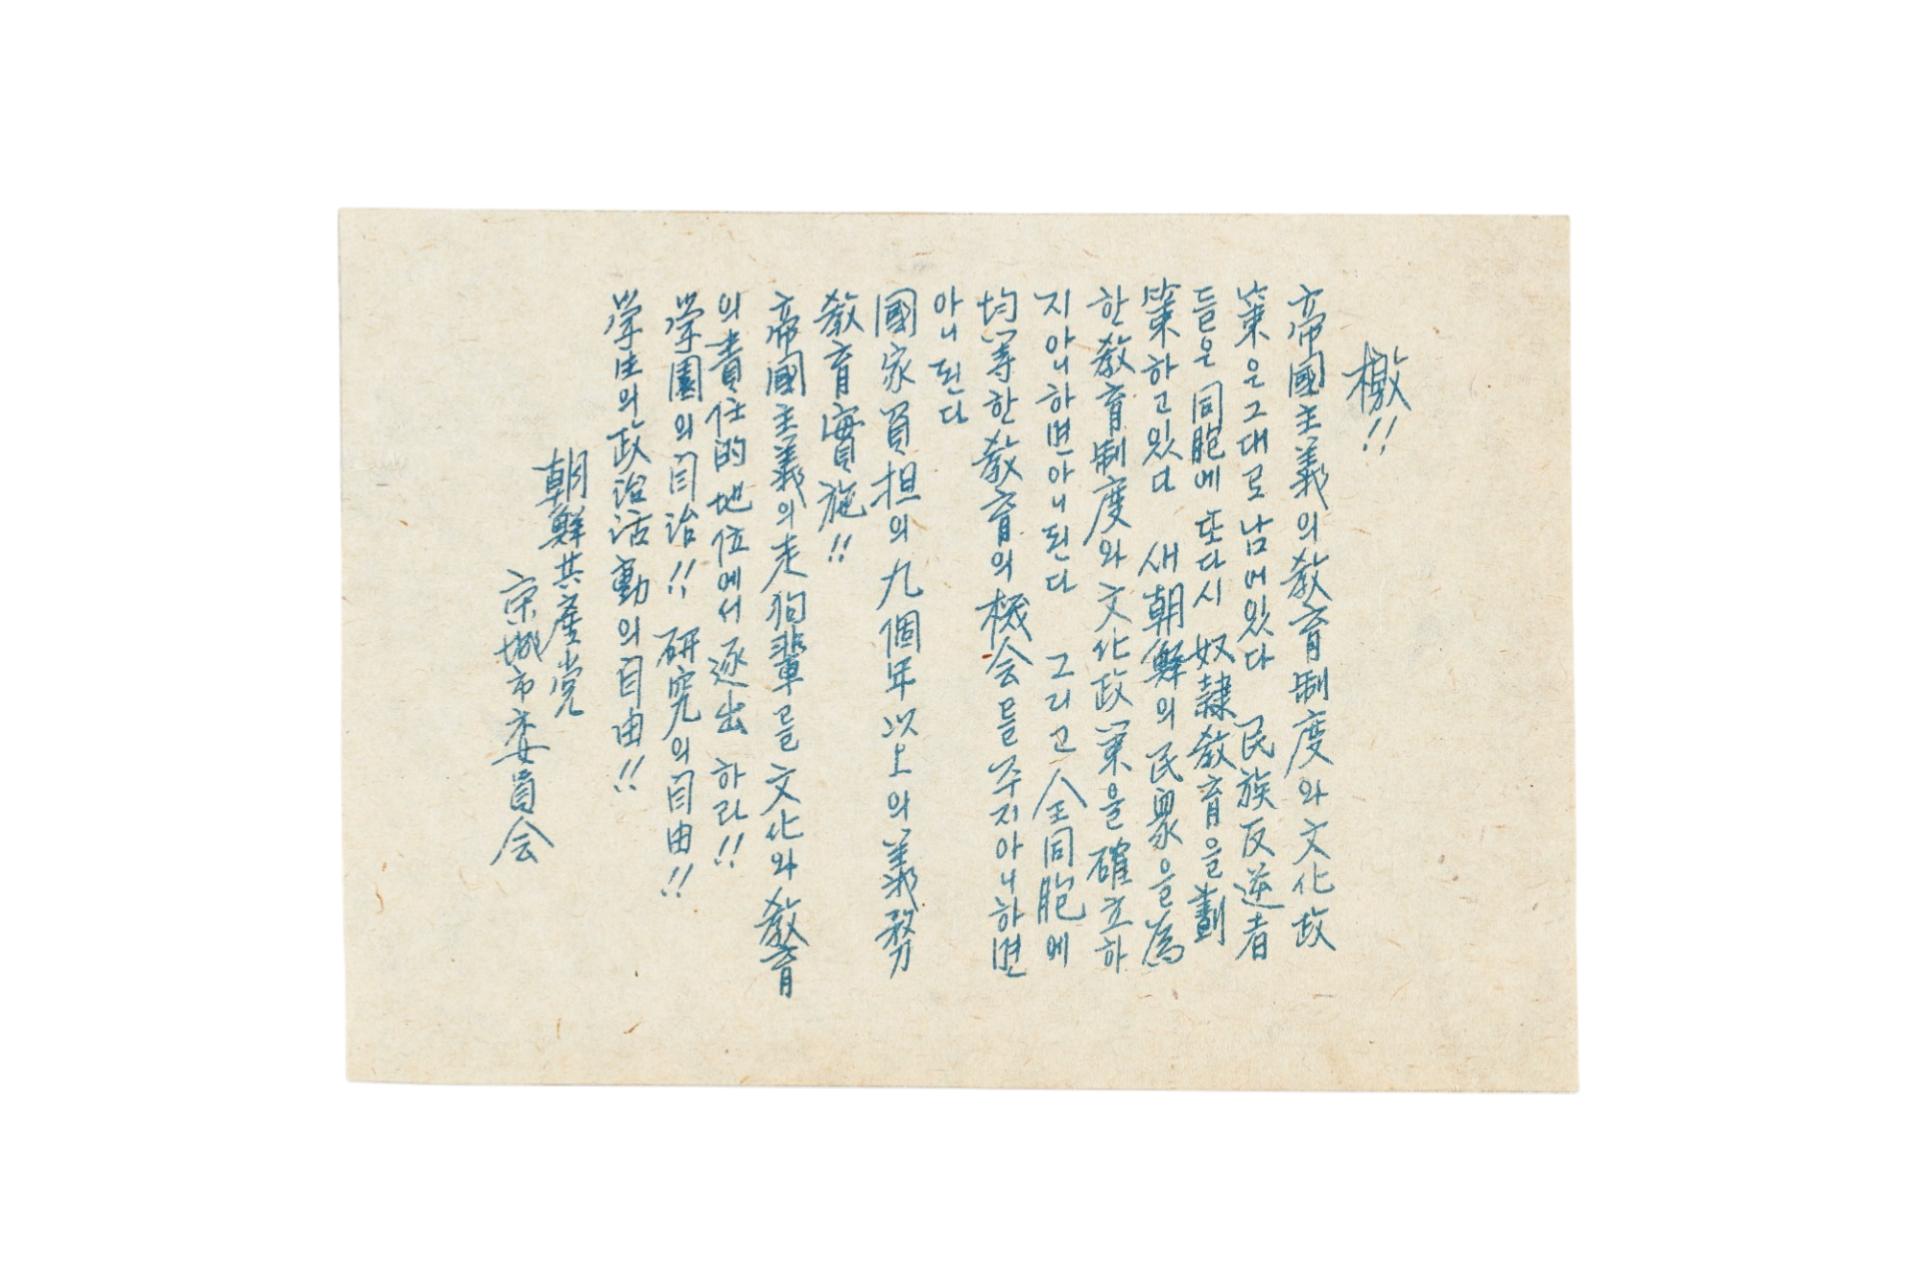 檄!!
帝國主義의敎育制度와文化政
策은그대로남머있다 民族反逆者
들은同胞에또다시奴隷敎育을劃
策하고있다 새朝鮮의民衆을爲
한敎育制度와文化政策을確立하
지아니하면아니된다 그리고全同胞에
均等한敎育의機会를주지아니하면
아니된다
國家負担의九個年以上의義務
敎育實施!!
帝國主義의走狗輩를文化와敎育
의責任的地位에서逐出하라!!
学園의自治!! 研究의自由!!
学生의政治活動의自由!!
朝鮮共産党
京城市委員会